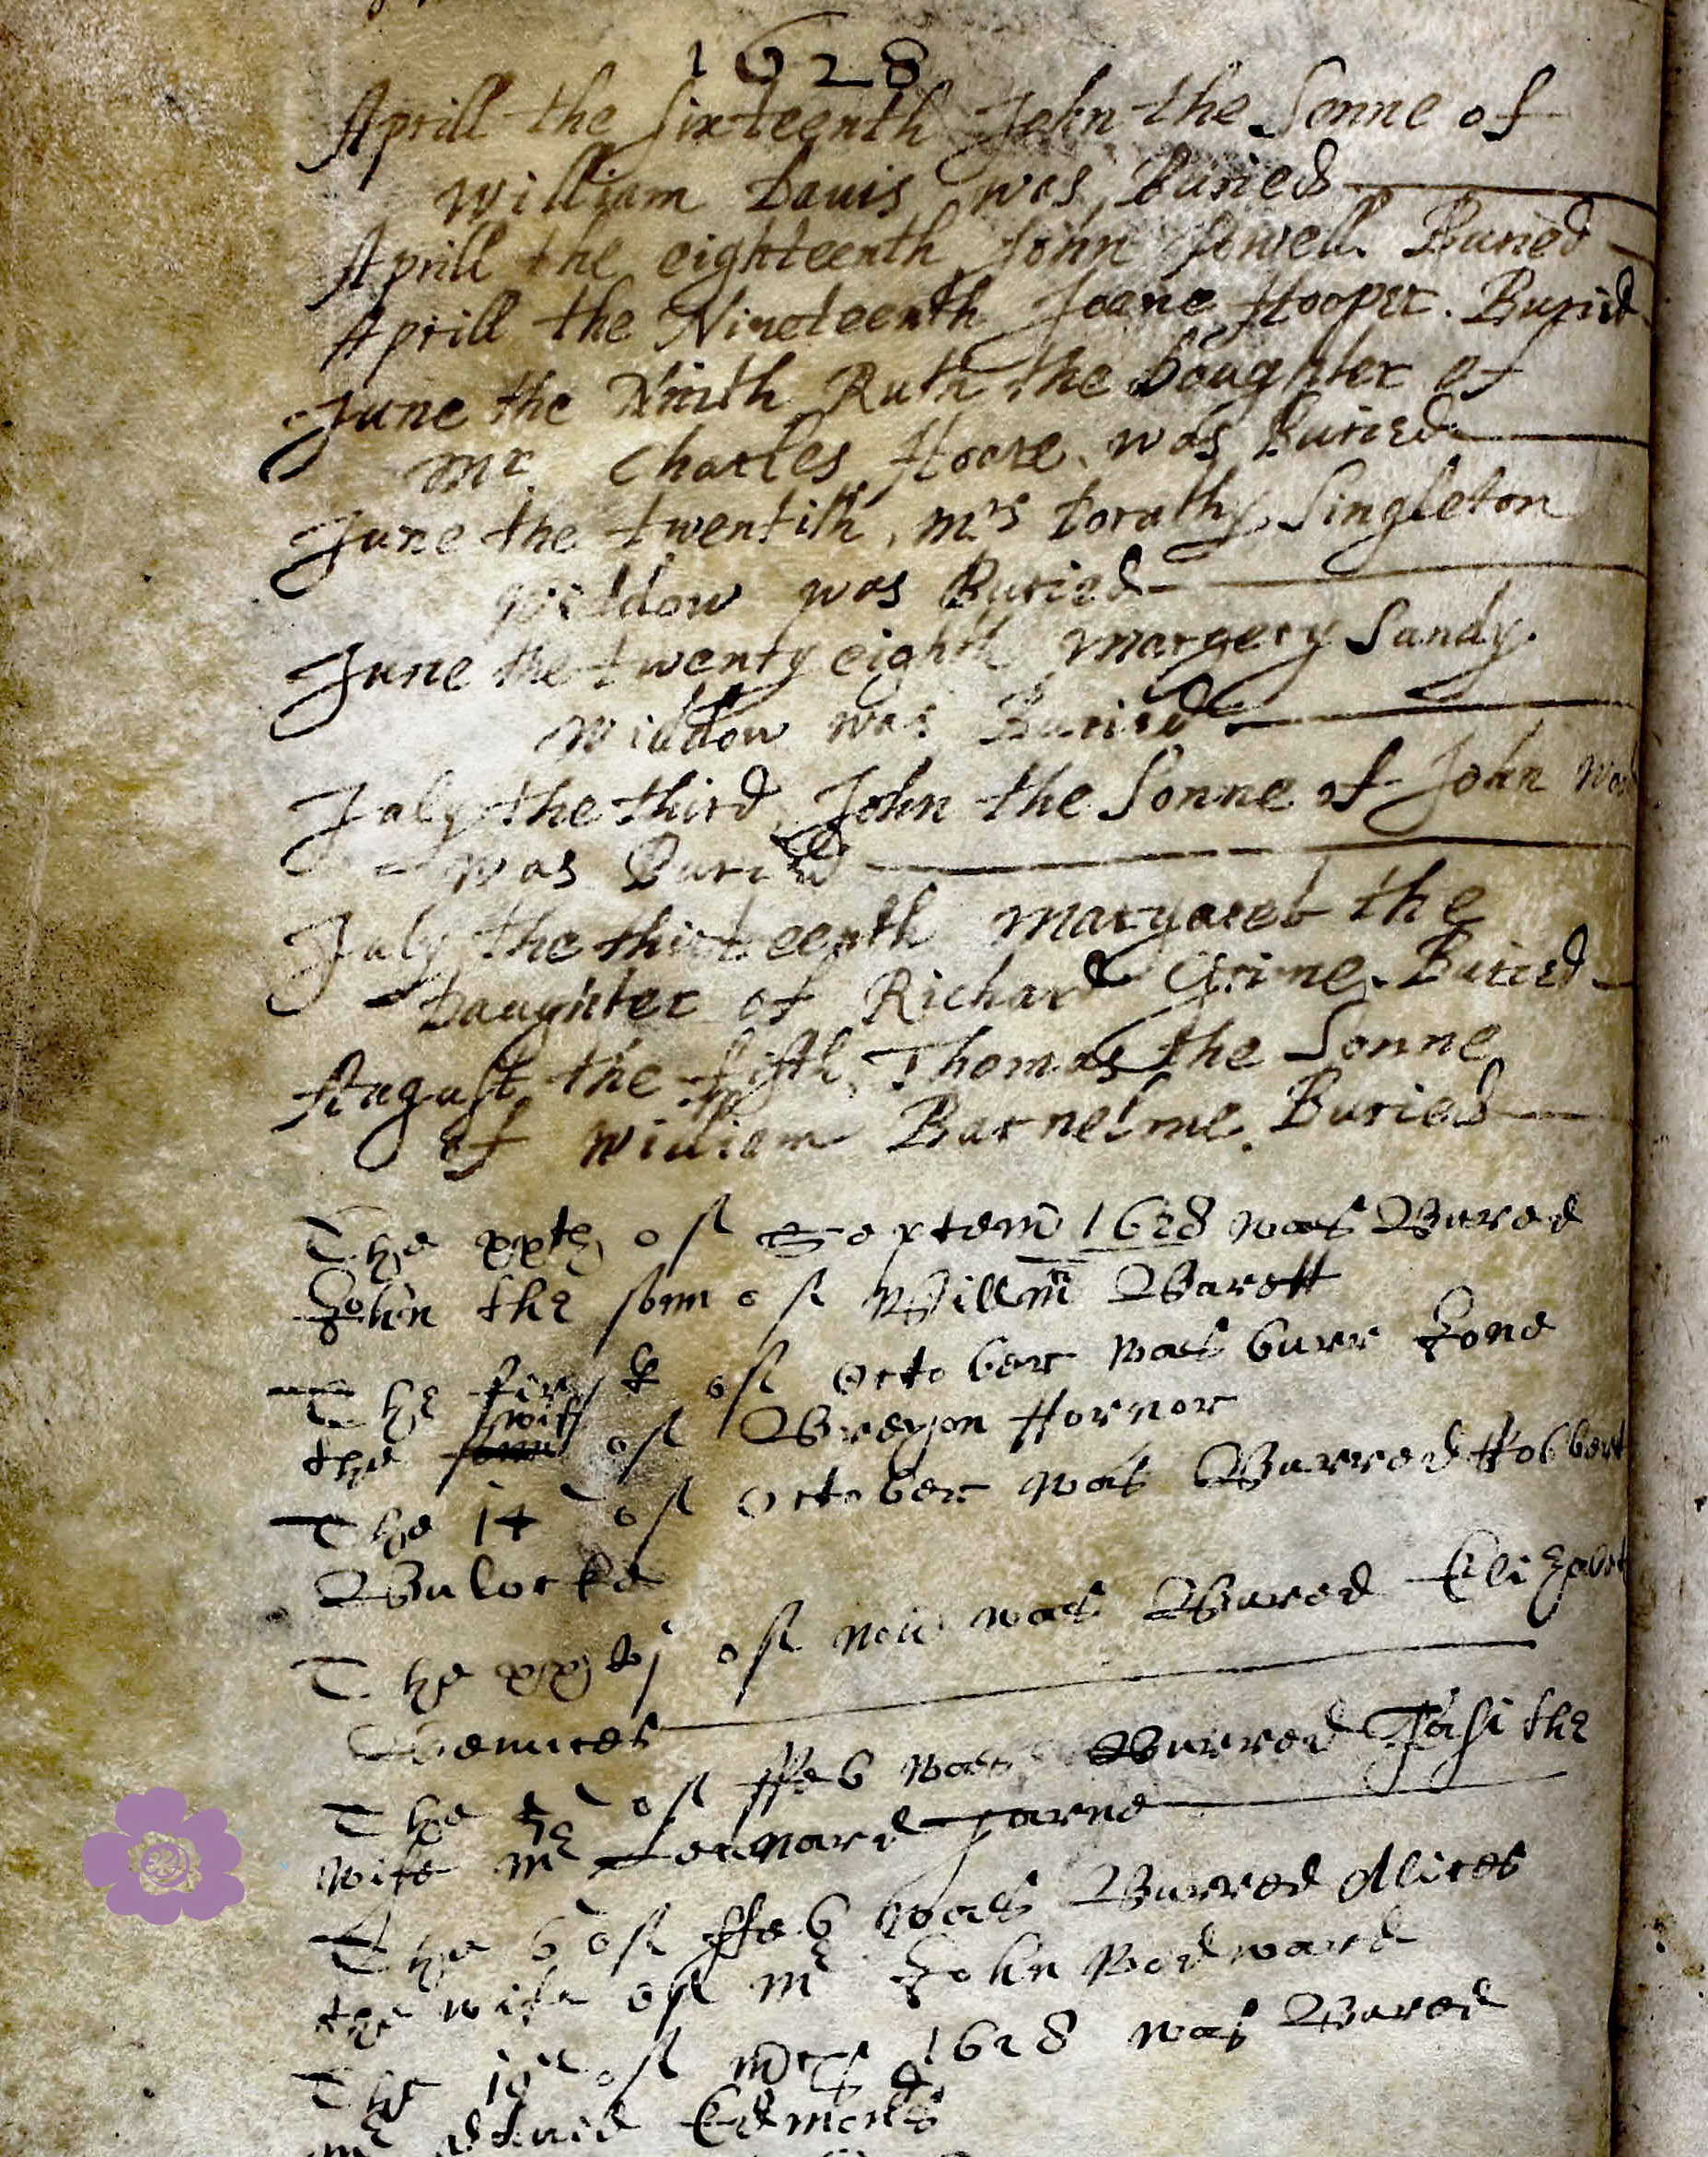 1628
Aprill the sixteenth John the Sonne of
William Dauis was Buried
Aprill the eighteenth John Buried
Aprill the Nineteenth Joane Hooper. Buried
June the Ninth Ruth the Daughter of
Mr. Charles Hoare was Buried
June the twentith, Mrs Dorathy Singleton
Widdow was Buried
June the twenty eighth Margery Sandy.
Widdow was Buried
July the third, John the Sonne of John
was Buried
July the thirteenth Margaret the
Daughter of Richard Grime. Buried
August the fifth, Thomas the Sonne
of William Barnelme. Buried
The xxth of Septem 1628 was Bured
John the sonn of Willm Barett
The first of October was burr Jone
the wiff of Breyon Hornor
The 14 of October was Burred
Bulocke
The of nou was Bured
The of ffeb was Burred the
wife Mr Leonard
The 6 of ffeb was Burred Alices
the wife of Mr John Wodward
The of 1628 was Bured
Mr